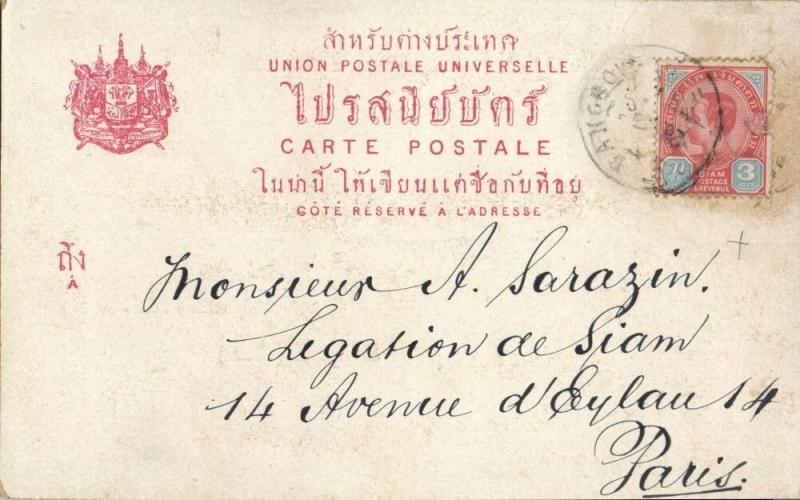 สำหรับต่างประเทศ
UNION POSTALE UNIVERSELLE
ไปรสนียบัตร์
CARTE POSTALE
ในน่านี้ ให้เขียนแต่ชื่อกับที่อยู่
CÔTÉ RÉSERVÉ À L'ADRESSE
ถึง
À
BANGKOK
SIAM
POSTAGE
& REVENUE
3
Monsieur A. Sarazin.
Legation de Siam
14 Avenue d'Eylau 14
Paris.